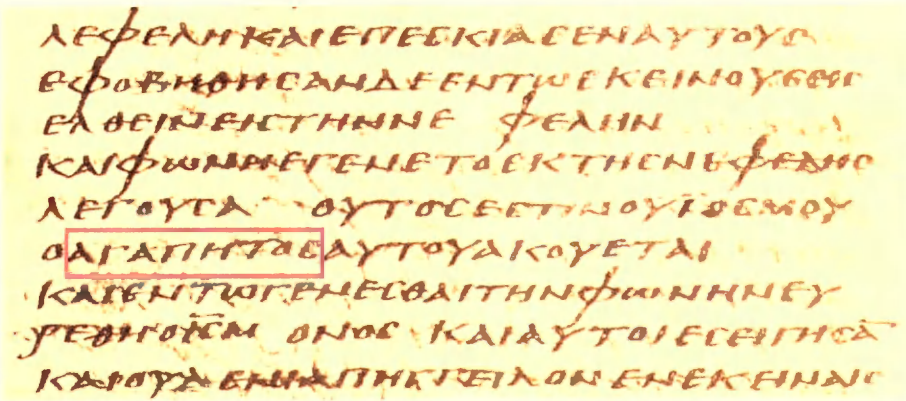 ΛΕΦΕΛΗΚΑΙΕΠΕϹΚΙΑϹΕΝΑΥΤΟΥϹ
ΕΦΟΒΗΘΗϹΑΝΔΕΕΝΤΩΕΚΕΙΝΟΥϹΕΙϹ
ΕΛΘΕΙΝΕΙϹΤΗΝΝΕ ΦΕΛΗΝ
ΚΑΙΦΩΝΗΕΓΕΝΕΤΟΕΚΤΗϹΝΕΦΕΛΗϹ
ΛΕΓΟΥϹΑ ΟΥΤΟϹΕϹΤΙΝΟΥΪΟϹΜΟΥ
ΟΑΓΑΠΗΤΟϹΑΥΤΟΥΑΚΟΥΕΤΑΙ
ΚΑΙΕΝΤΩΓΕΝΕϹΘΑΙΤΗΝΦΩΝΗΝΕΥ
ΡΕΘΗΟΙ̅Ϲ̅Μ ΟΝΟϹ ΚΑΙΑΥΤΟΙΕϹΕΙΓΗϹΑ̅
ΚΑΙΟΥΔΕΝΙΑΠΗΓΓΕΙΛΟΝΕΝΕΚΕΙΝΑΙϹ